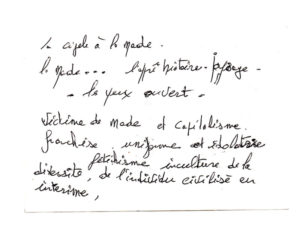 à la mode.
la mode... l'après histoire-
- les yeux ouvert -
victime de mode et capitalisme.
franchise uniforme et idolatrie
fétichisme inculture de la
diversité, de l'individu civilisé en
interime,